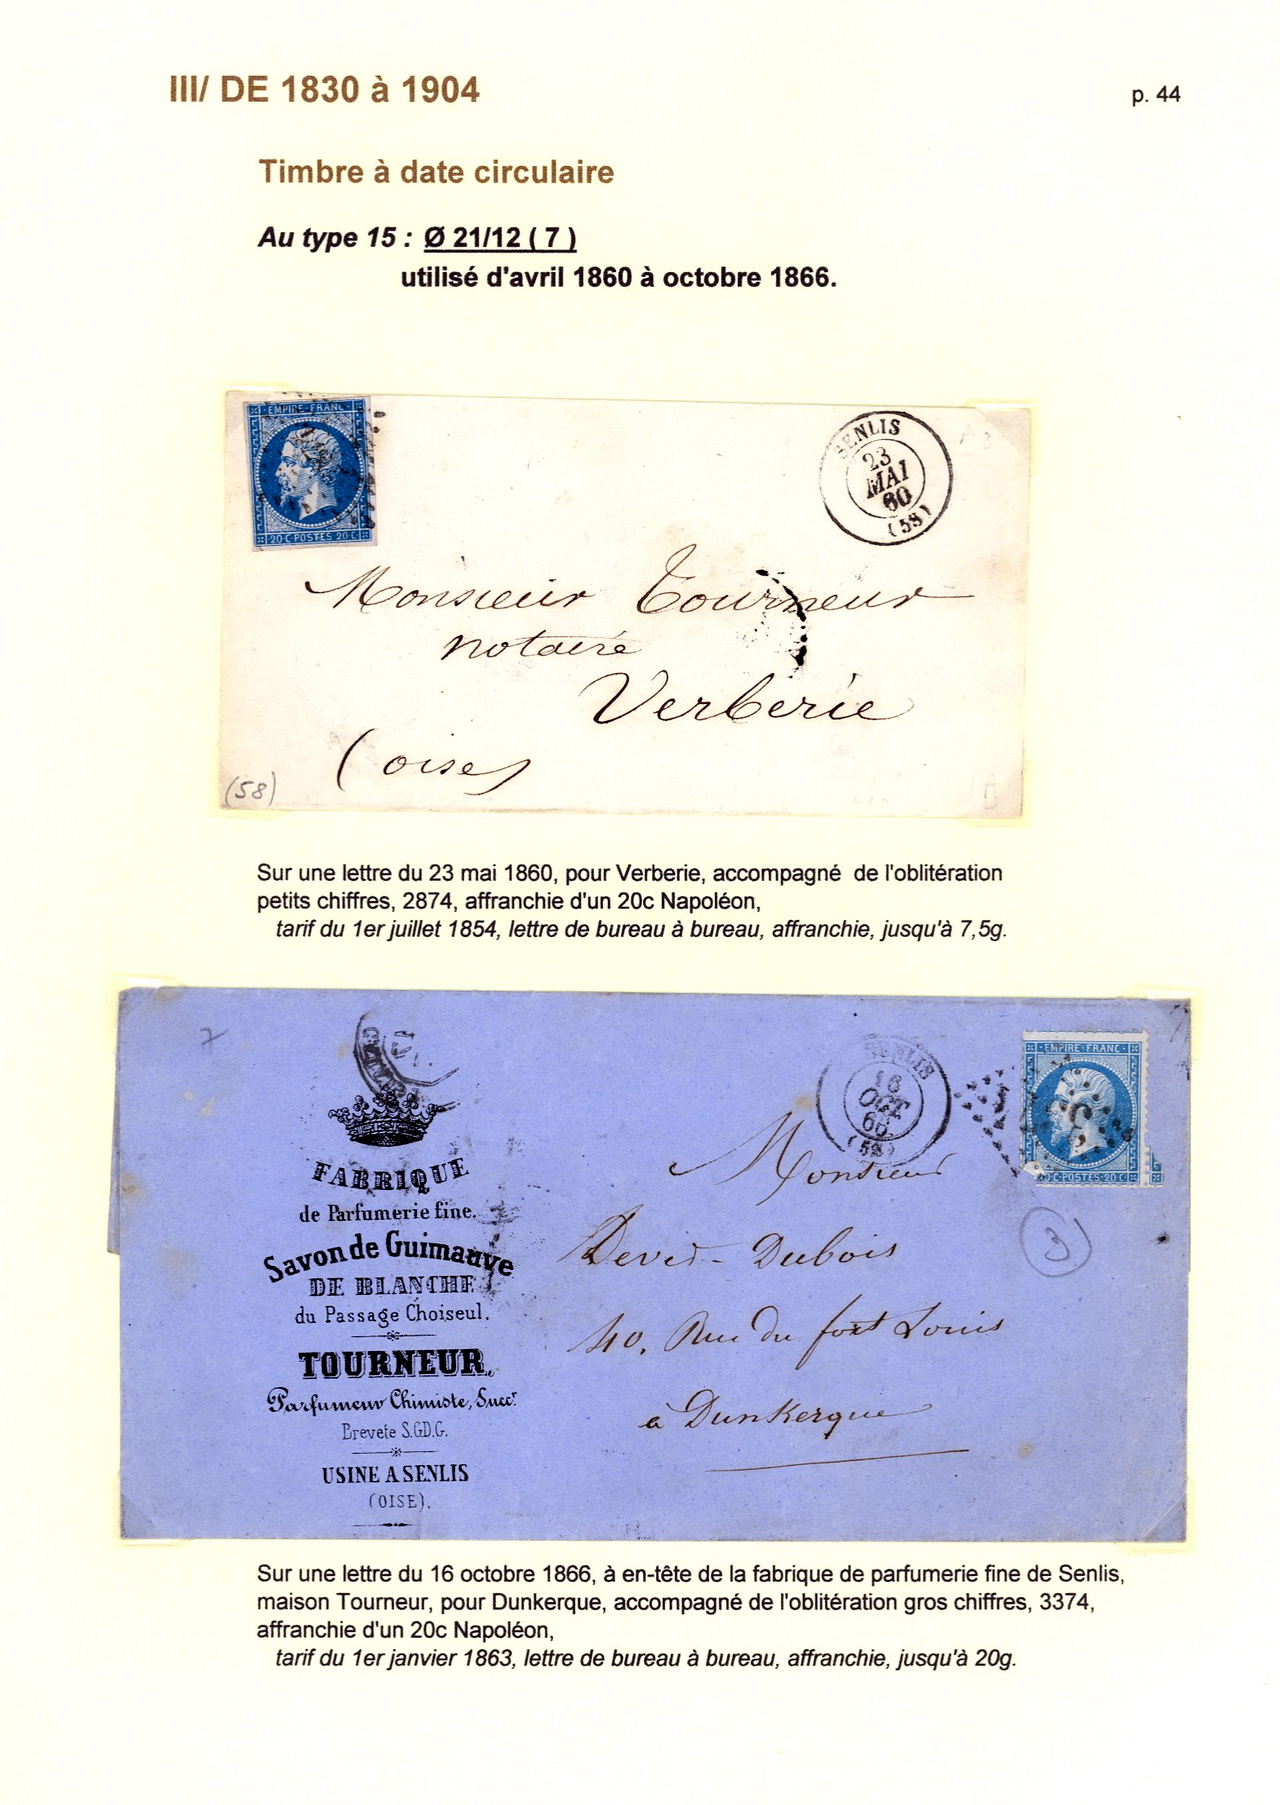 III/ DE 1830 à 1904
p. 44
Timbre à date circulaire
Au type 15 : Ø 21/12 ( 7 )
utilisé d'avril 1860 à octobre 1866.
EMPIRE FRANC
20 C POSTES 20 C
SENLIS
23
MAI
60
(58)
Monsieur Tourneur
notaire
Verberie
(oise)
(58)
Sur une lettre du 23 mai 1860, pour Verberie, accompagné de l'oblitération
petits chiffres, 2874, affranchie d'un 20c Napoléon,
tarif du 1er juillet 1854, lettre de bureau à bureau, affranchie, jusqu'à 7,5g.
7
SENLIS
16
OCT
66
(58)
EMPIRE FRANC
20 C POSTES 20 C
3
FABRIQUE
de Parfumerie fine.
Savon de Guimauve
DE BLANCHE
du Passage Choiseul.
TOURNEUR,
Parfumeur Chimiste, Succr.
Brevete S.G.D.G.
USINE A SENLIS
(OISE).
Monsieur
Dubois
40, Rue du fort Louis
à Dunkerque
Sur une lettre du 16 octobre 1866, à en-tête de la fabrique de parfumerie fine de Senlis,
maison Tourneur, pour Dunkerque, accompagné de l'oblitération gros chiffres, 3374,
affranchie d'un 20c Napoléon,
tarif du 1er janvier 1863, lettre de bureau à bureau, affranchie, jusqu'à 20g.